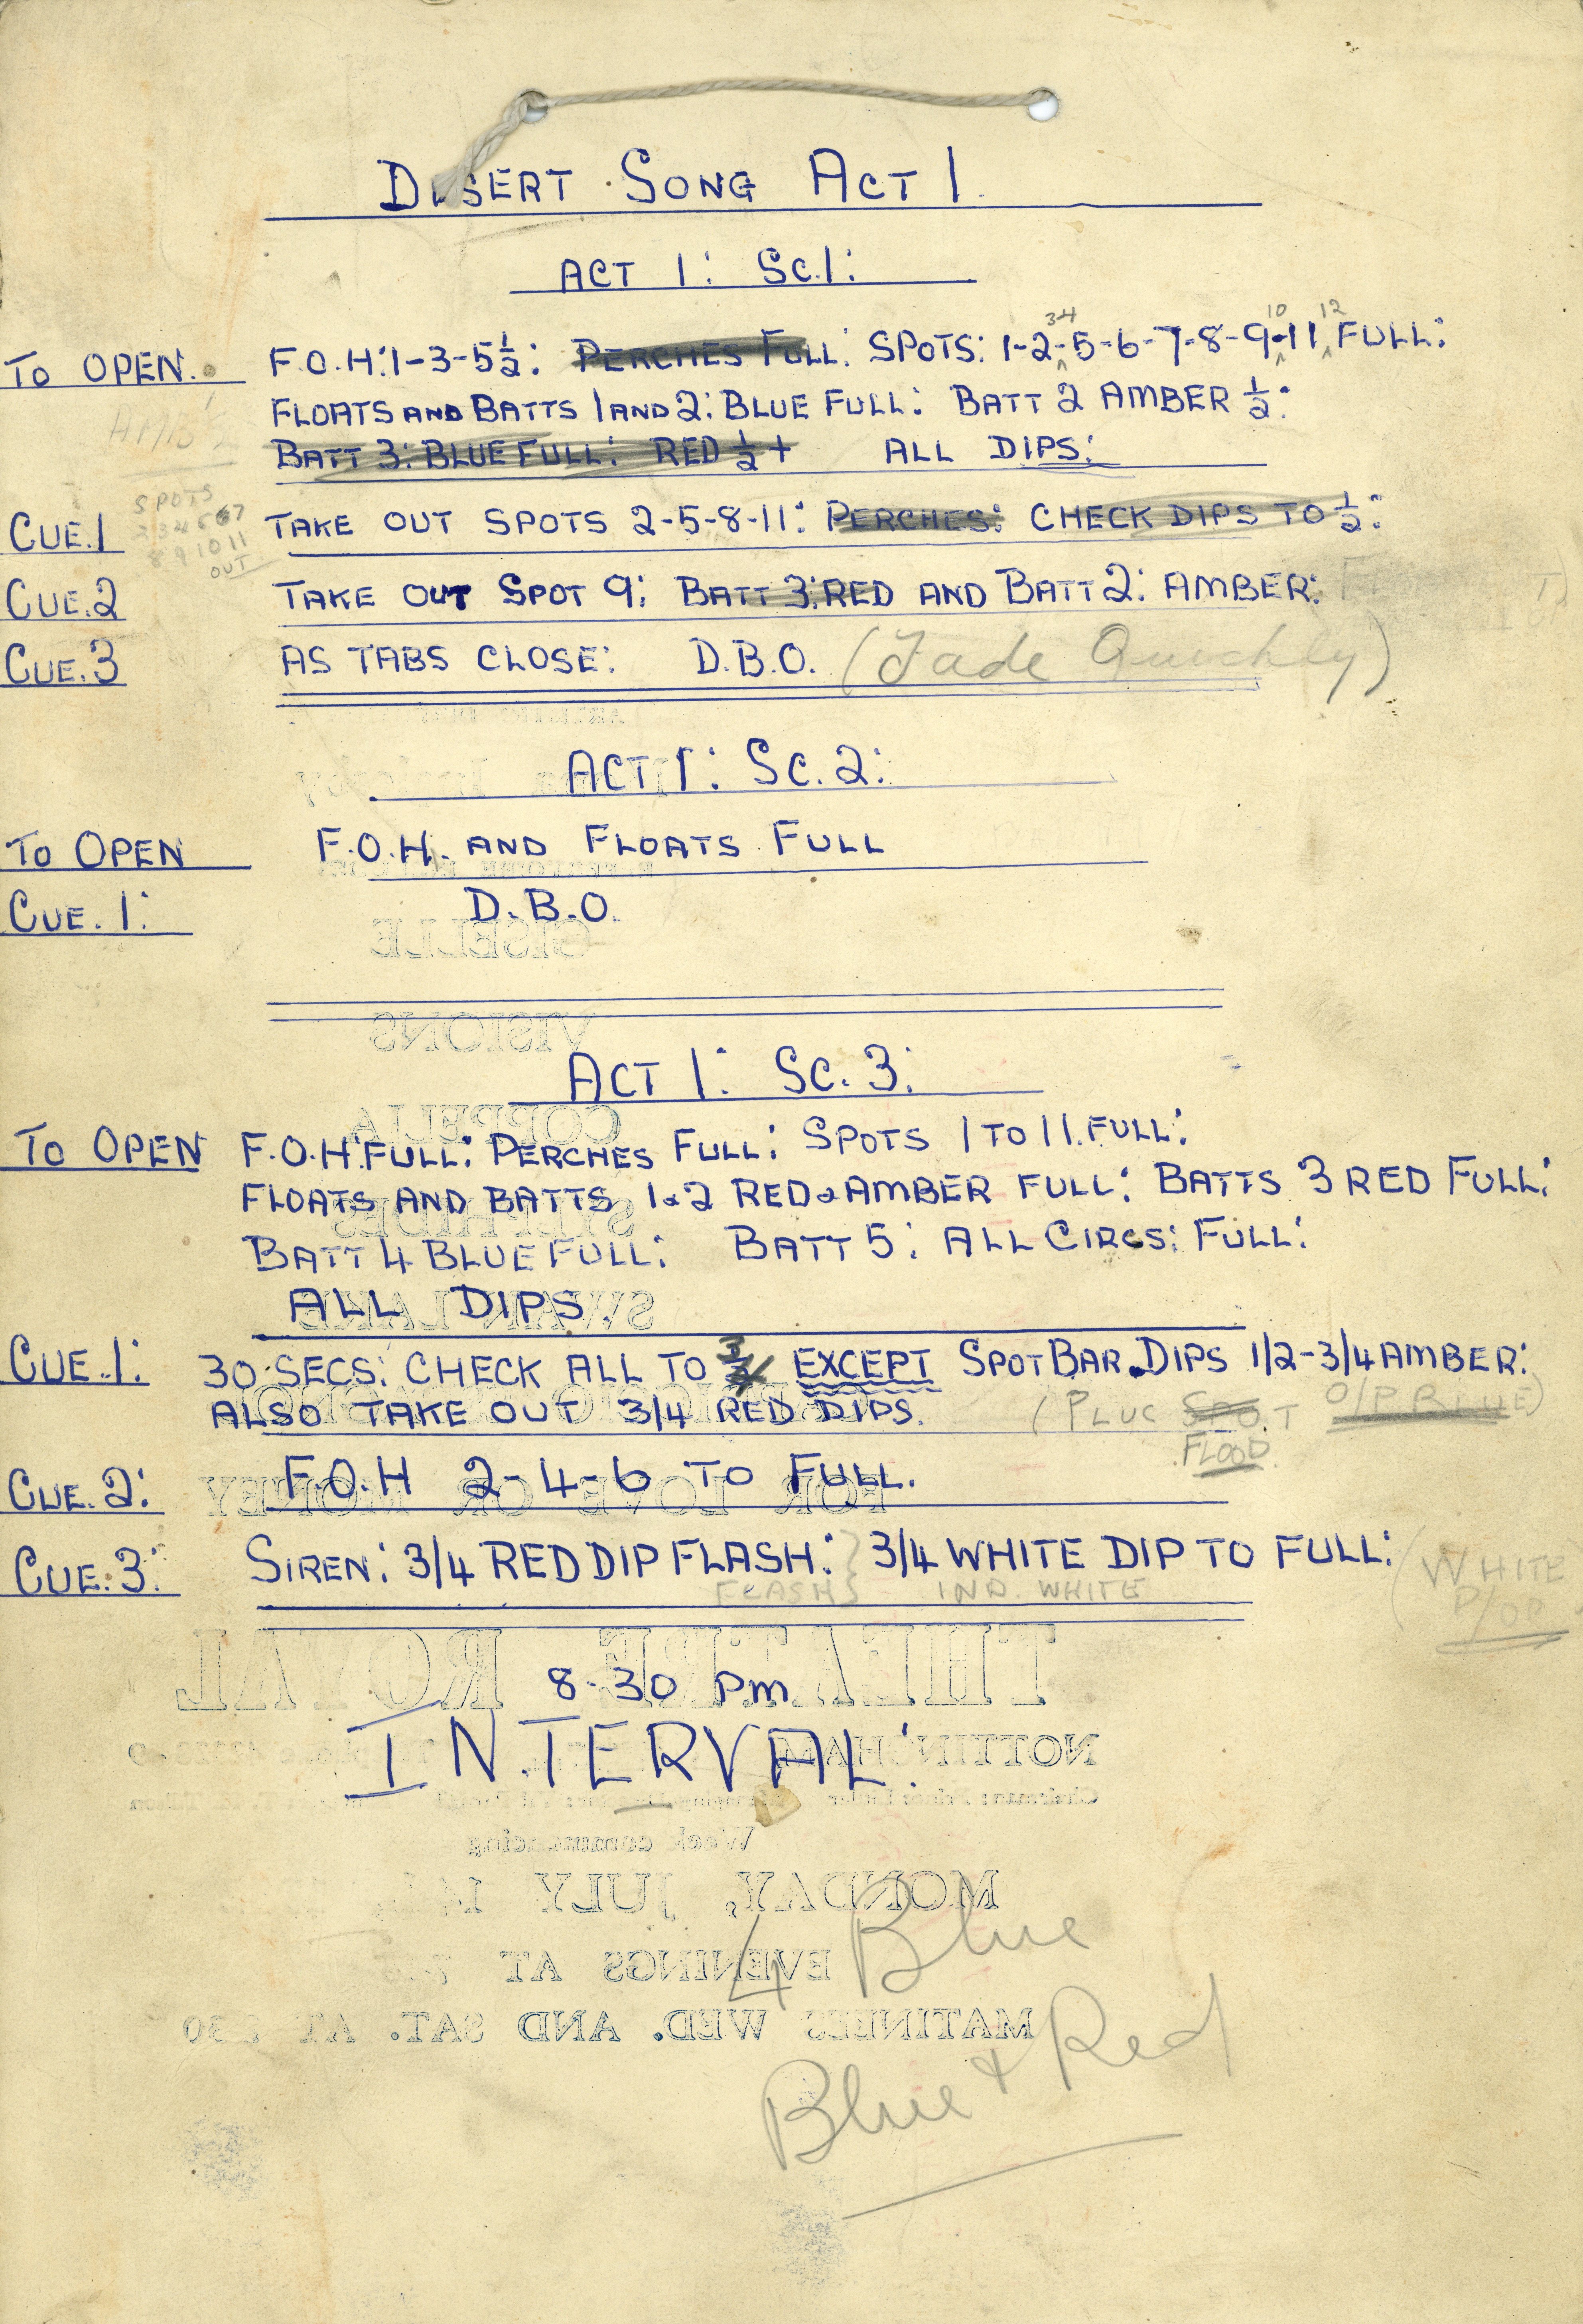 DESERT SONG ACT 1
ACT 1: Sc.1:
TO OPEN. F.O.H: 1-3-5 ½: PERCHES FULL: SPOTS: 1-2-34-5-6-7-8-9-10-11 12 FULL:
FLOATS AND BATTS 1 AND 2: BLUE FULL: BATT 2 AMBER ½:
BATT 3: BLUE FULL: RED ½ + ALL DIPS:
SPOTS
2 3 4 5 6 7
8 9 10 11
OUT
CUE.1 TAKE OUT SPOTS 2-5-8-11: PERCHES: CHECK DIPS TO ½:
CUE.2 TAKE OUT SPOT 9: BATT 3: RED AND BATT 2: AMBER:
CUE.3 AS TABS CLOSE: D.B.O. (Fade Quickly)
ACT 1: Sc. 2:
TO OPEN F.O.H. AND FLOATS FULL
CUE. 1: D.B.O.
GISELLE
VISIONS
ACT 1: Sc. 3:
COPPELIA
TO OPEN F.O.H. FULL: PERCHES FULL: SPOTS 1 TO 11. FULL:
FLOATS AND BATTS 1&2 RED & AMBER FULL: BATTS 3 RED FULL:
SYLPHIDES
BATT 4 BLUE FULL: BATT 5: ALL CIRCS: FULL:
ALL DIPS.
SWAN LAKE
CUE.1: 30 SECS: CHECK ALL TO ¾ EXCEPT SPOT BAR. DIPS 1/2-3/4 AMBER:
ALSO TAKE OUT 3/4 RED DIPS. (PLUC SPOT O/P BLUE)
FLOOD.
CUE. 2: F.O.H 2-4-6 TO FULL.
FOR LOVE OR MONEY
CUE. 3: SIREN: 3/4 RED DIP FLASH: 3/4 WHITE DIP TO FULL: (WHITE
FLASH IND. WHITE P/OP
THEATRE ROYAL
8-30 pm
NOTTINGHAM
INTERVAL:
Week commencing
MONDAY, JULY
4 Blue
EVENINGS AT
MATINEES WED. AND SAT. AT 2.30
Blue + Red